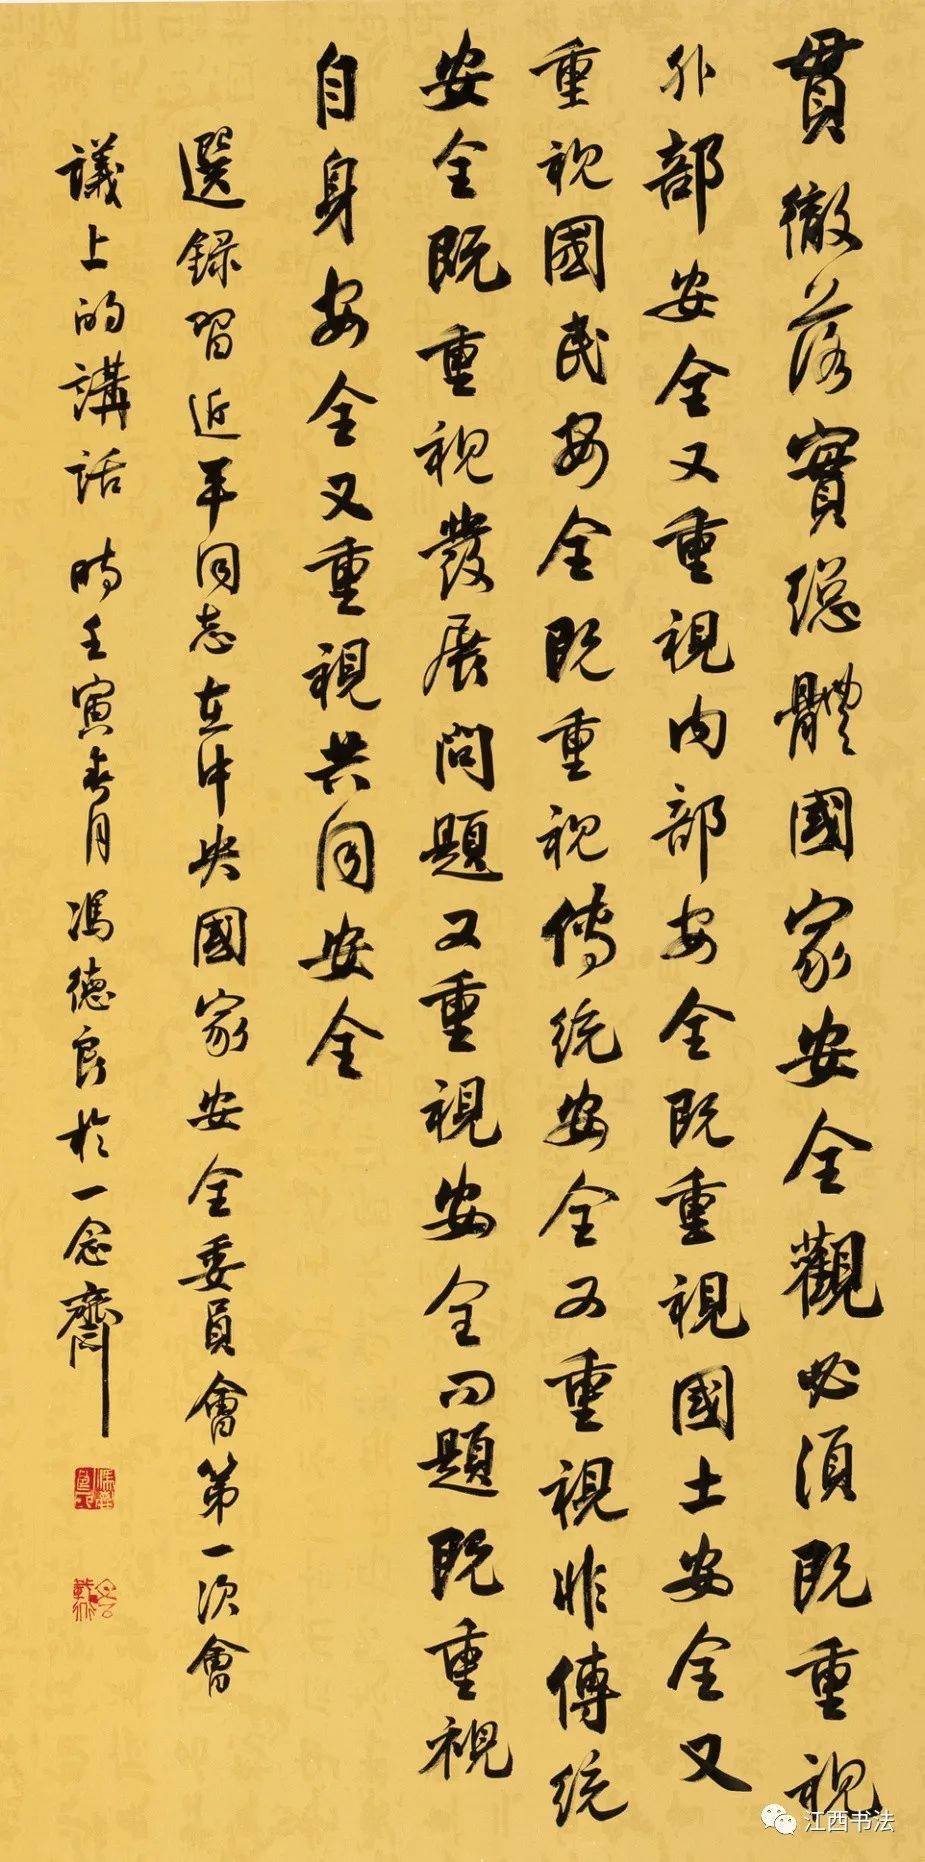 貫徹落實總體國家安全觀必須既重視
外部安全又重視内部安全既重視國土安全又
重視國民安全既重視傳統安全又重視非傳統
安全既重視發展問題又重視安全问題既重視
自身安全又重視共同安全
選録習近平同志在中央國家安全委員會第一次會
議上的講話 時壬寅春月馮德良於一念齋
江西书法